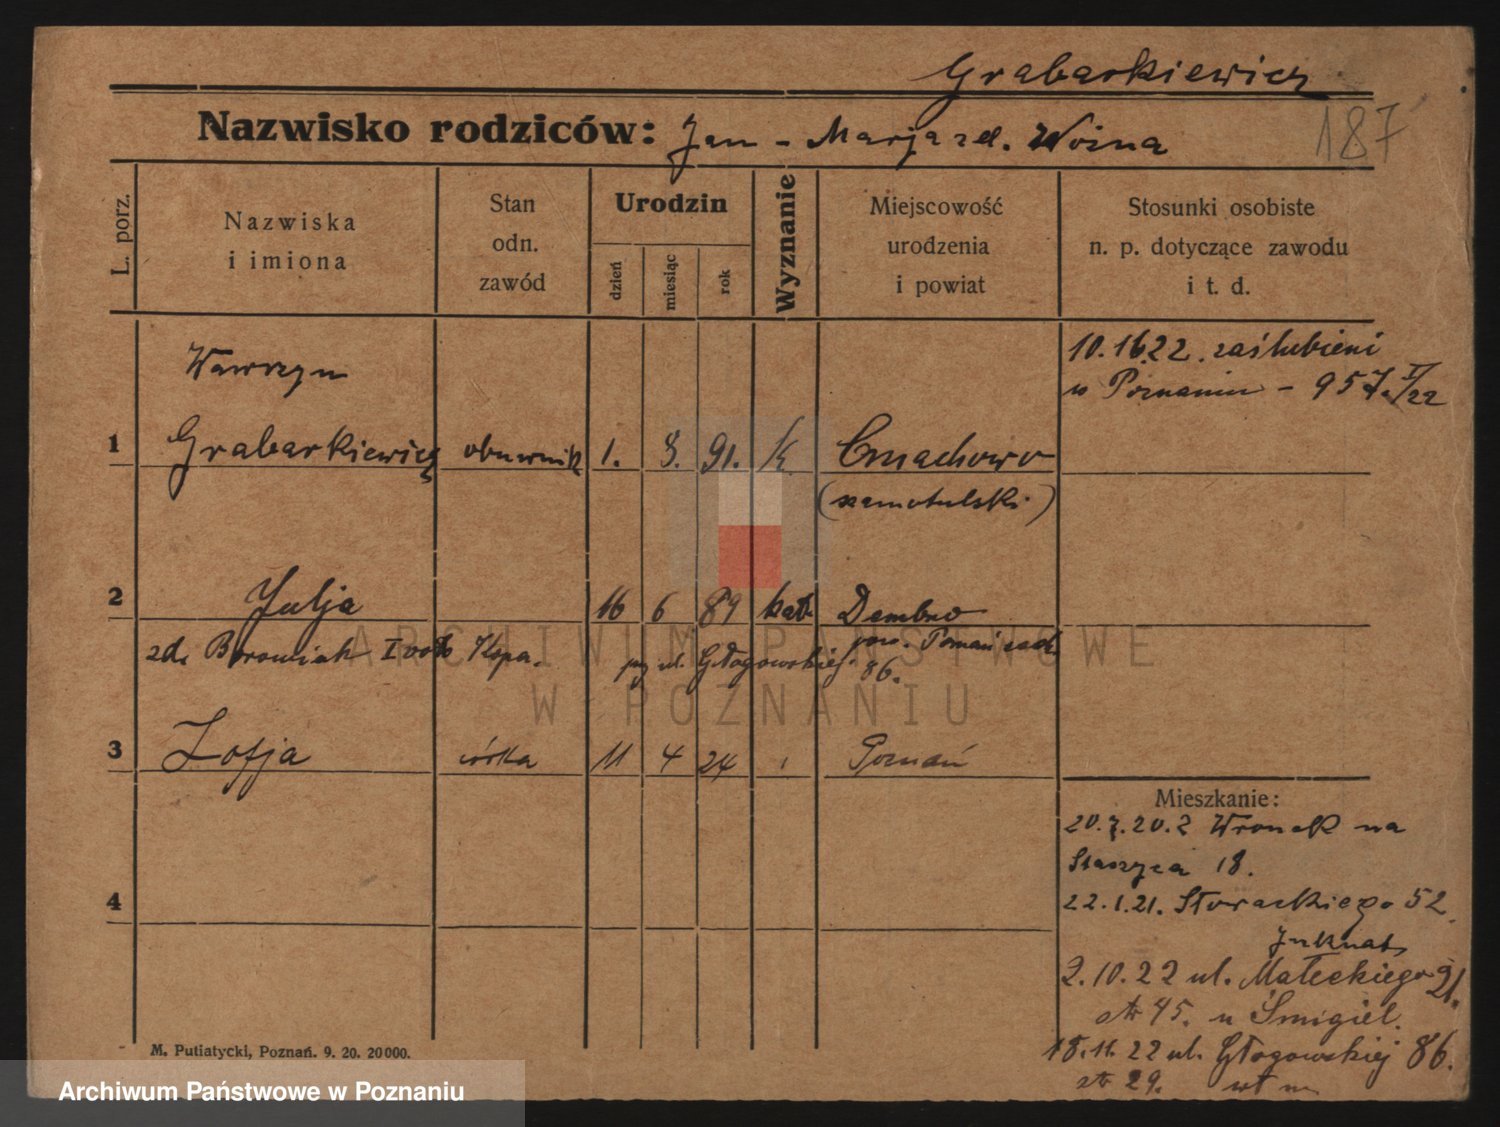 Grabarkiewicz
Nazwisko rodziców: Jan - Marja zd. Woźna
187
L. porz.
Nazwiska
i imiona
Stan
odn.
zawód
Urodzin
dzień
miesiąc
rok
Wyznanie
Miejscowość
urodzenia
i powiat
Stosunki osobiste
n. p. dotyczące zawodu
i t. d.
10.16.22. zaślubieni
w Poznaniu - 957
Wawrzyn
1 Grabarkiewicz obuwnik 1. 8. 91. k. Cmachowo
(szamotulski)
2 Julja 16 6 89 kat. Dembno
zd. Borowiak I voto Kopa. przy ul. Głogowskiej 86. pow. Poznań zach.
3 Zofja córka 11 4 24 Poznań
4
Mieszkanie:
20.7.20. z Wronek na
Staszyca 18.
22.1.21. Słowackiego 52
2.10.22 ul. Małeckiego 21.
45. u Śmigiel.
18.11.22 ul. Głogowskiej 86.
29.
M. Putiatycki, Poznań. 9. 20. 20000.
ARCHIWUM PAŃSTWOWE
W POZNANIU
Archiwum Państwowe w Poznaniu